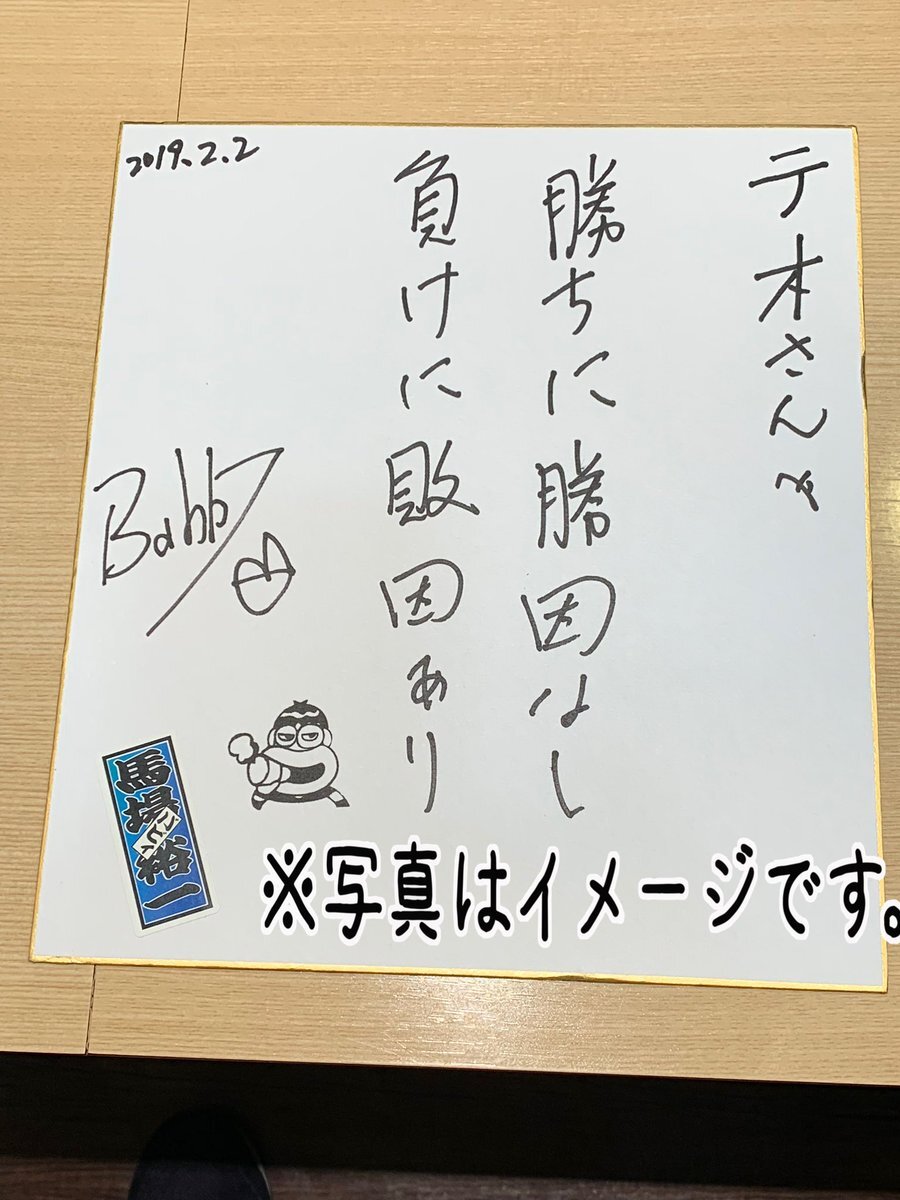 テ本さんえ
勝ちに勝因なし
負けに敗因あり
2019.2.2
Babby
馬場裕一
※写真はイメージです。